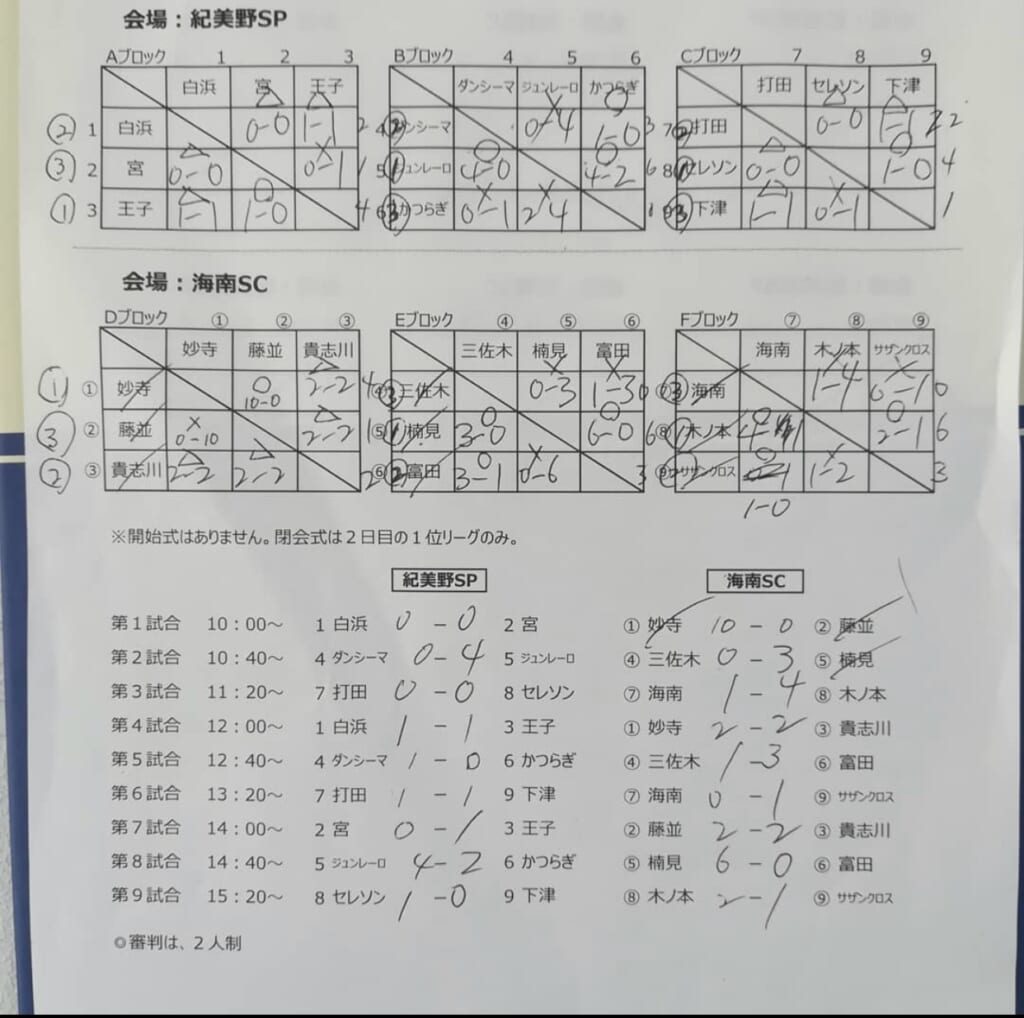 会場：紀美野SP
Aブロック 1 2 3 Bブロック 4 5 6 Cブロック 7 8 9
白浜 宮 王子 ダンシーマ ジュンレーロ かつらぎ 打田 セレソン 下津
② 1 白浜 △ 0-0 △ 1-1 2 4 ② ダンシーマ × 0-4 ○ 1-0 3 7 ② 打田 △ 0-0 △ 1-1 2
③ 2 宮 △ 0-0 × 0-1 1 5 ① ジュンレーロ ○ 4-0 ○ 4-2 6 8 ① セレソン △ 0-0 ○ 1-0 4
① 3 王子 △ 1-1 ○ 1-0 4 6 ③ かつらぎ × 0-1 × 2 4 9 ③ 下津 △ 1-1 × 0-1 1
会場：海南SC
Dブロック ① ② ③ Eブロック ④ ⑤ ⑥ Fブロック ⑦ ⑧ ⑨
妙寺 藤並 貴志川 三佐木 楠見 富田 海南 木ノ本 サザンクロス
① ① 妙寺 ○ 10-0 △ 2-2 4 ④ ③ 三佐木 × 0-3 × 1-3 0 ⑦ ③ 海南 × 1-4 × 0-1 0
③ ② 藤並 × 0-10 △ 2-2 1 ⑤ ① 楠見 ○ 3-0 ○ 6-0 6 ⑧ ① 木ノ本 ○ 4-1 ○ 2-1 6
② ③ 貴志川 △ 2-2 △ 2-2 2 ⑥ ② 富田 ○ 3-1 × 0-6 3 ⑨ ② サザンクロス ○ × 1-2 3
1-0
※開始式はありません。閉会式は２日目の１位リーグのみ。
紀美野SP 海南SC
第１試合 10：00～ 1 白浜 0 - 0 2 宮 ① 妙寺 10 - 0 ② 藤並
第２試合 10：40～ 4 ダンシーマ 0 - 4 5 ジュンレーロ ④ 三佐木 0 - 3 ⑤ 楠見
第３試合 11：20～ 7 打田 0 - 0 8 セレソン ⑦ 海南 1 - 4 ⑧ 木ノ本
第４試合 12：00～ 1 白浜 1 - 1 3 王子 ① 妙寺 2 - 2 ③ 貴志川
第５試合 12：40～ 4 ダンシーマ 1 - 0 6 かつらぎ ④ 三佐木 1 - 3 ⑥ 富田
第６試合 13：20～ 7 打田 1 - 1 9 下津 ⑦ 海南 0 - 1 ⑨ サザンクロス
第７試合 14：00～ 2 宮 0 - 1 3 王子 ② 藤並 2 - 2 ③ 貴志川
第８試合 14：40～ 5 ジュンレーロ 4 - 2 6 かつらぎ ⑤ 楠見 6 - 0 ⑥ 富田
第９試合 15：20～ 8 セレソン 1 - 0 9 下津 ⑧ 木ノ本 2 - 1 ⑨ サザンクロス
◎審判は、２人制